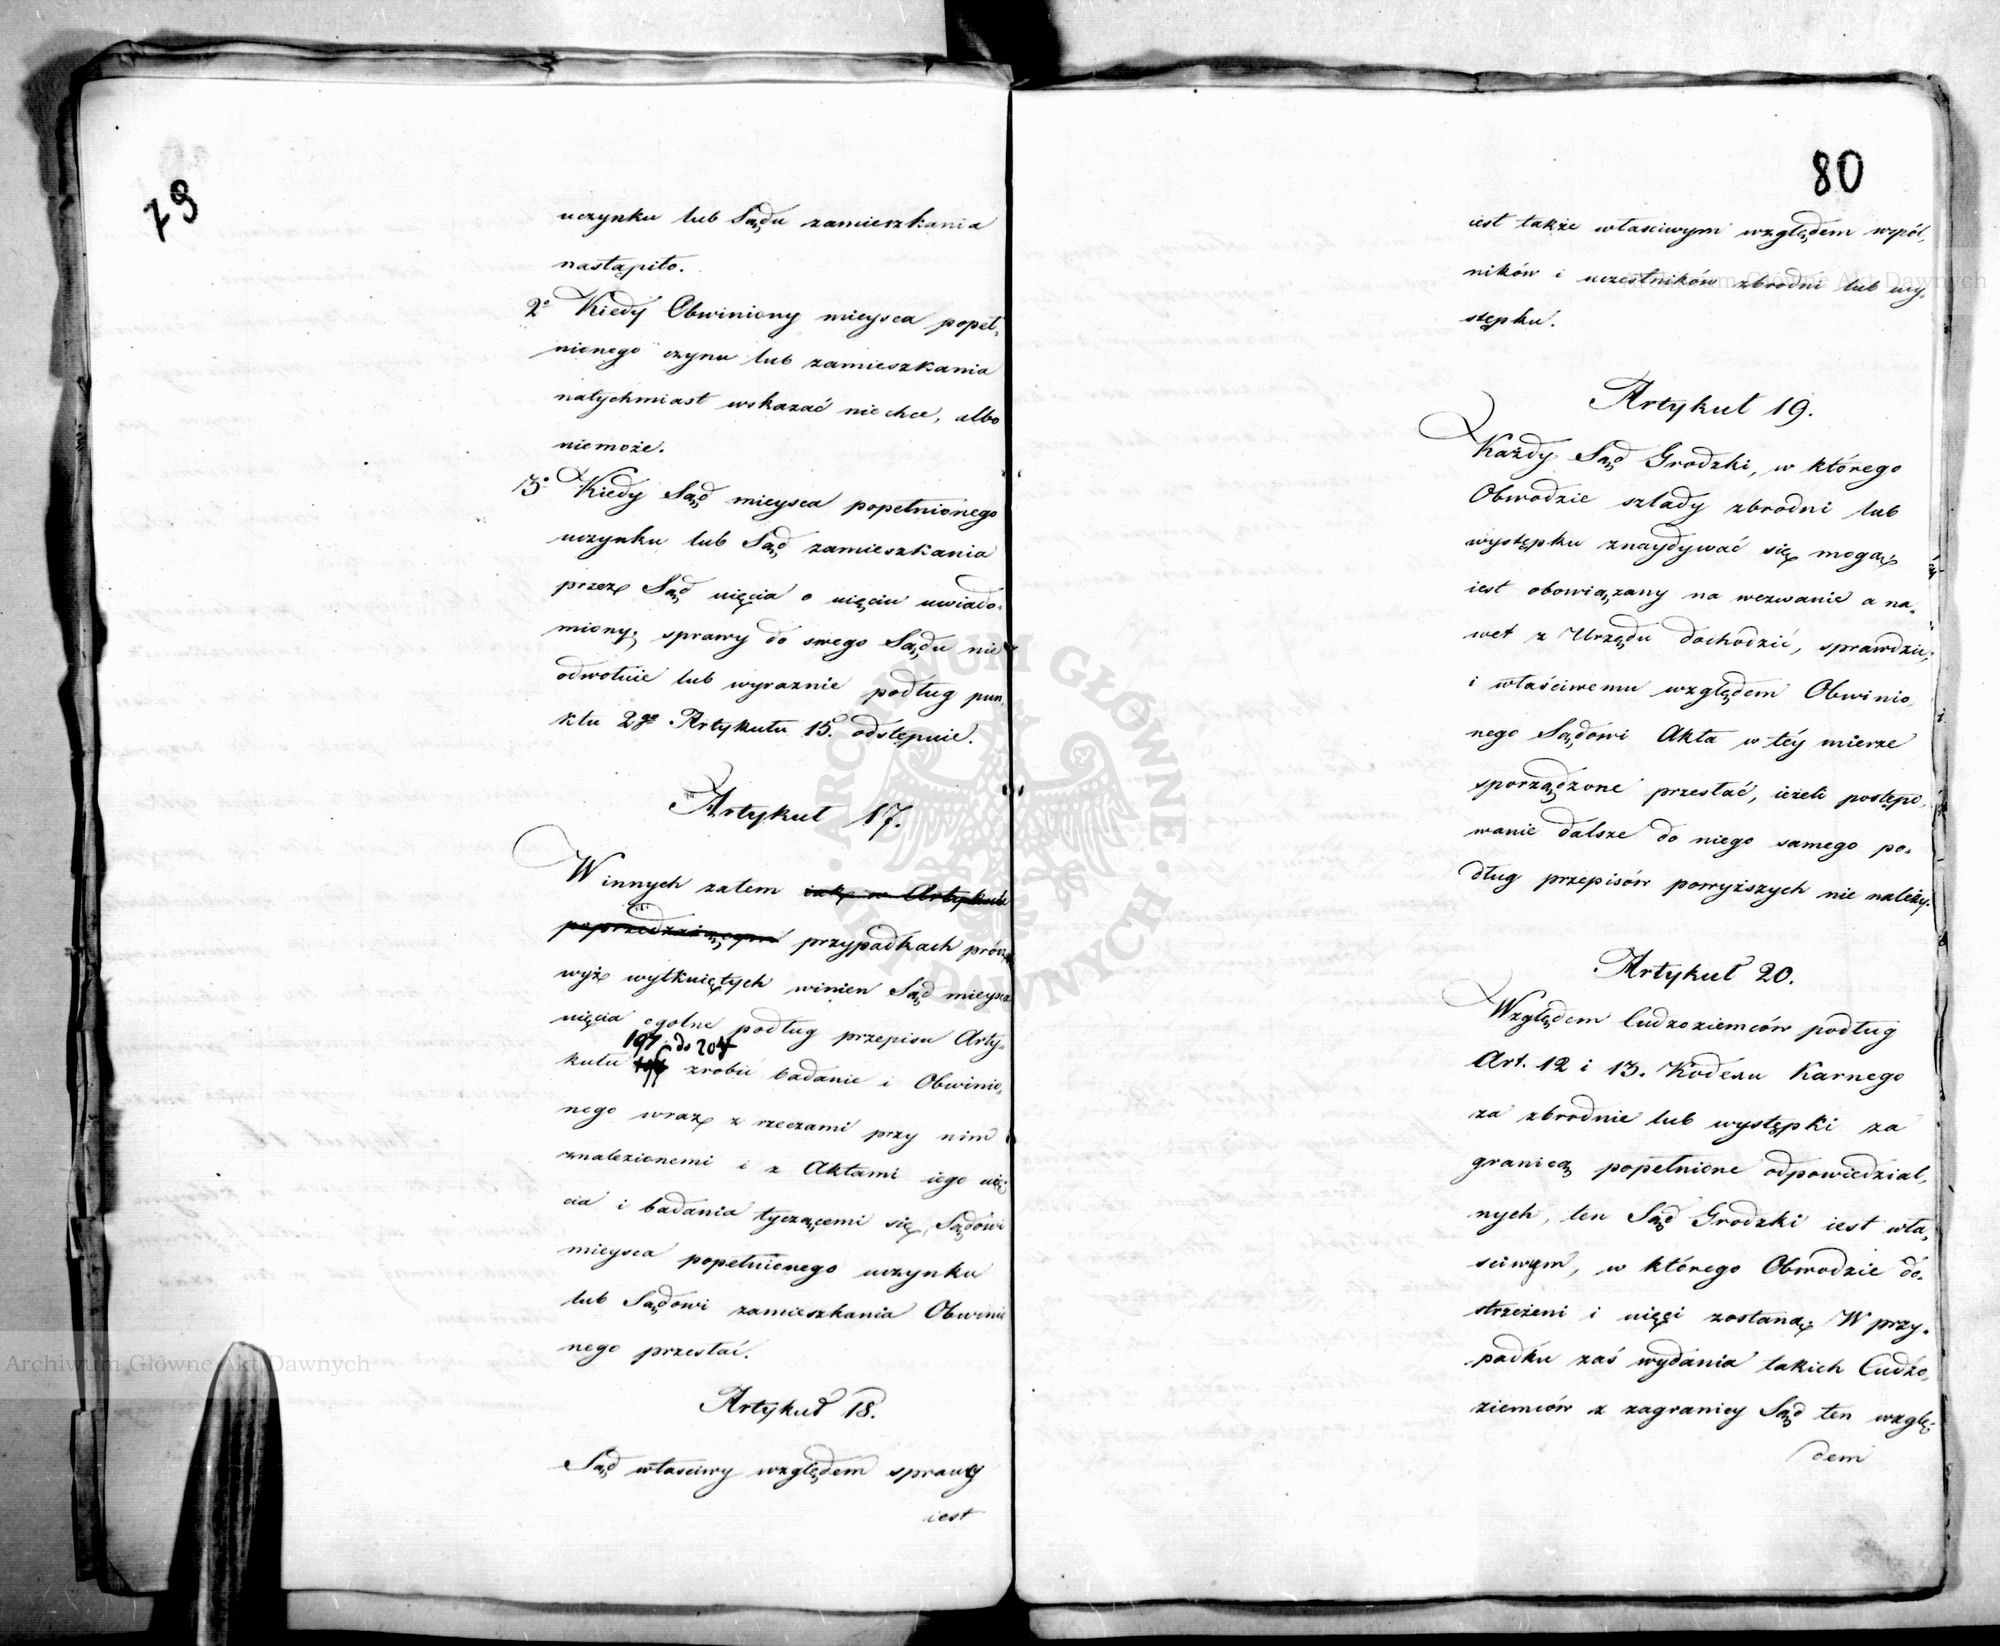 79
uczynku lub Sądu zamieszkania
nastąpiło.
2° Kiedy Obwiniony mieysca popeł-
nionego czynu lub zamieszkania
natychmiast wskazać nie chce, albo
niemoże.
3° Kiedy Sąd mieysca popełnionego
uczynku lub Sąd zamieszkania
przez Sąd uięcia o uięciu uwiado-
miony, sprawy do swego Sądu nie
odwołuie lub wyraznie podług pun-
ktu 2go Artykułu 15. odstępuie.
Artykuł 17.
W innych zatem iak w Artykule
poprzedzaiącym przypadkach prócz
wyż wytkniętych winien Sąd mieysca
uięcia ogolne podług przepisu Arty-
197 do 204
kułu zrobić badanie i Obwinio-
nego wraz z rzeczami przy nim
znalezionemi i z Aktami iego uię-
cia i badania tyczącemi się, Sądowi
mieysca popełnionego uczynku
lub Sądowi zamieszkania Obwinio
nego przesłać.
Artykuł 18.
Sąd właściwy względem sprawcy
iest
80
iest także właściwym względem wspól-
ników i uczestników zbrodni lub wy-
stępku.
Artykuł 19.
Każdy Sąd Grodzki, w którego
Obwodzie szlady zbrodni lub
występku znaydywać się mogą,
iest obowiązany na wezwanie a na-
wet z Urzędu dochodzić, sprawdzić,
i właściwemu względem Obwinio-
nego Sądowi Akta w téy mierze
sporządzone przesłać, ieżeli postępo-
wanie dalsze do niego samego po-
dług przepisów powyższych nie należy.
Artykuł 20.
Względem Cudzoziemców podług
Art. 12 i 13. Kodexu Karnego
za zbrodnie lub występki za
granicą popełnione odpowiedzial-
nych, ten Sąd Grodzki iest wła-
sciwym, w którego Obwodzie do-
strzeżeni i uięci zostaną. W przy-
padku zaś wydania takich Cudzo-
ziemców z zagranicy Sąd ten wzglę-
dem
Archiwum Główne Akt Dawnych
Archiwum Główne Akt Dawnych
ARCHIWUM GŁÓWNE AKT DAWNYCH